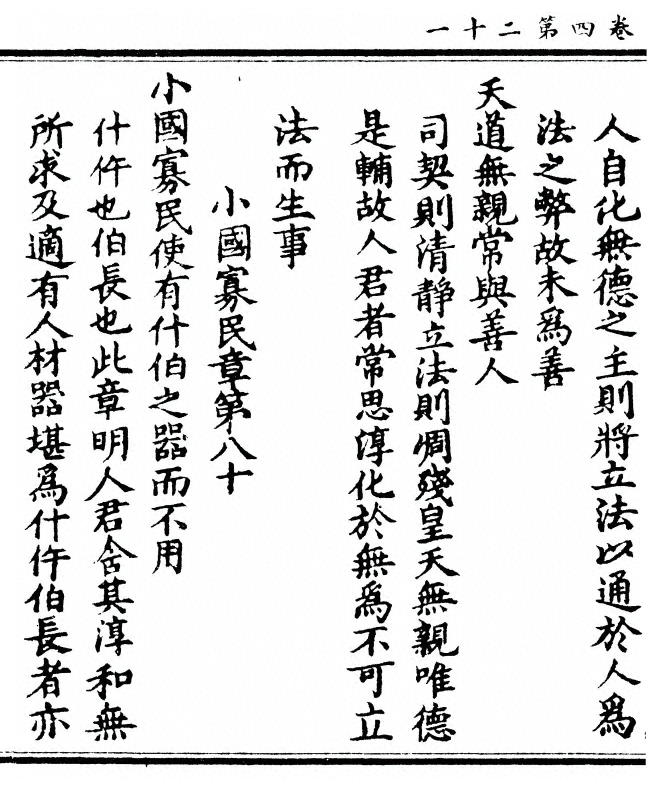 卷四第二十一
人自化無德之主則將立法以通於人爲
法之弊故未爲善
天道無親常與善人
司契則清靜立法則凋殘皇天無親唯德
是輔故人君者常思淳化於無爲不可立
法而生事
小國寡民章第八十
小國寡民使有什伯之器而不用
什仵也伯長也此章明人君含其淳和無
所求及適有人材器堪爲什仵伯長者亦